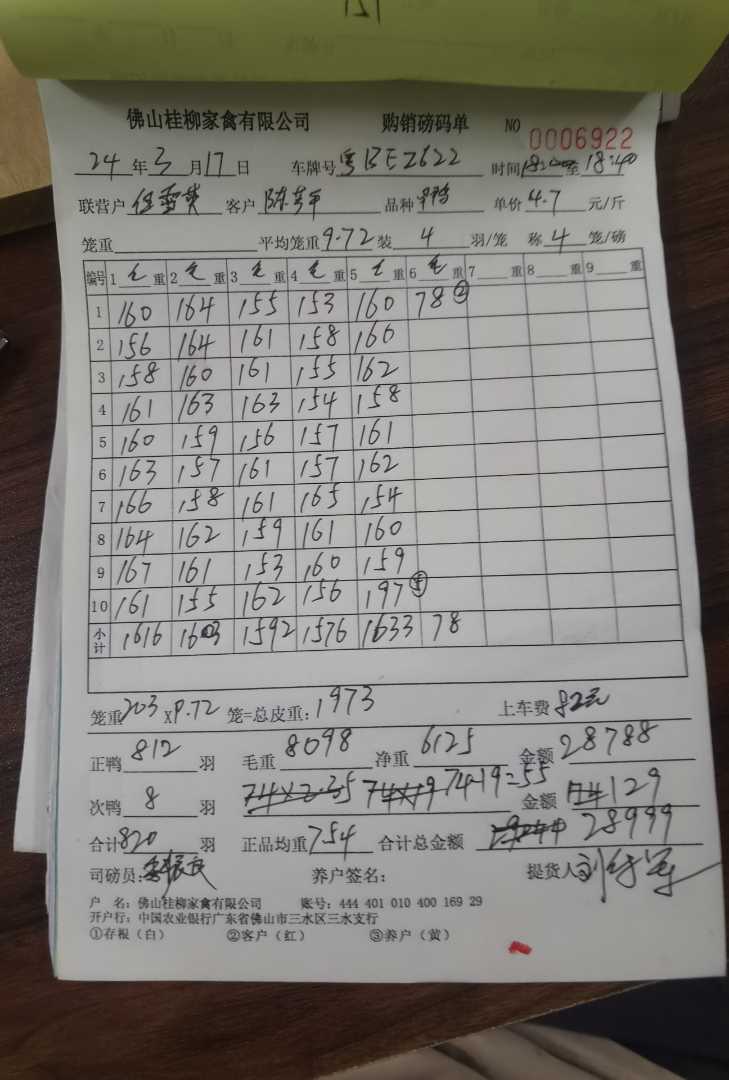 佛山桂柳家禽有限公司 购销磅码单 NO 0006922
24 年 3 月 17 日 车牌号 粤BEZ622 时间 至 18:40
联营户 客户 品种 单价 4.7 元/斤
笼重 平均笼重 9.72 装 4 羽/笼 称 4 笼/磅
编号 1 毛 重 2 毛 重 3 毛 重 4 毛 重 5 毛 重 6 毛 重 7 重 8 重 9 重
1 160 164 155 153 160 78 ②
2 156 164 161 158 166
3 158 160 161 155 162
4 161 163 163 154 158
5 160 159 156 157 161
6 163 157 161 157 162
7 166 158 161 165 154
8 164 162 159 161 160
9 167 161 153 160 159
10 161 155 162 156 197 ⑤
小计 1616 1603 1592 1576 1633 78
笼重 203 X 9.72 笼=总皮重: 1973 上车费 82元
正鸭 812 羽 毛重 8098 净重 6125 金额 28788
次鸭 8 羽 74-19=55 金额 129
合计 820 羽 正品均重 7.54 合计总金额 28999
司磅员: 养户签名: 提货人
户 名: 佛山桂柳家禽有限公司 账号: 444 401 010 400 169 29
开户行: 中国农业银行广东省佛山市三水区三水支行
①存根（白） ②客户（红） ③养户（黄）